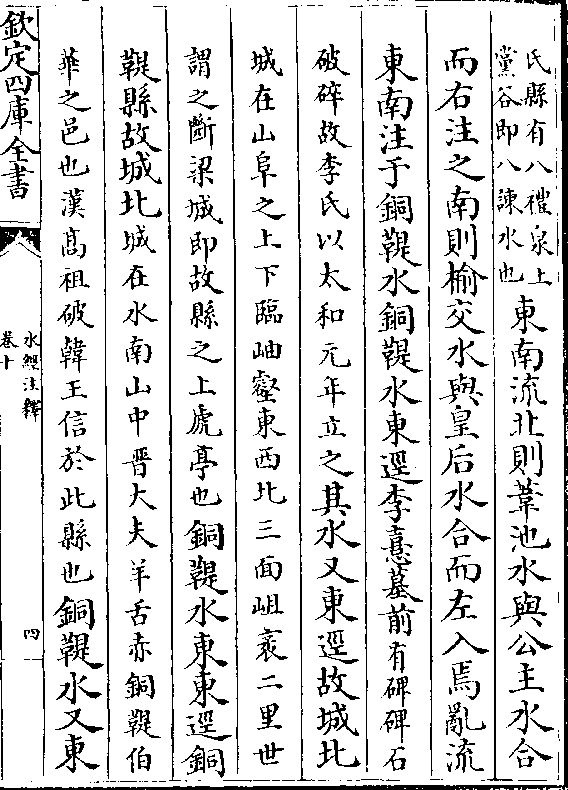 氏縣有八禮泉上
黨谷即八諫水也
東南流北則葦池水與公主水合
而右注之南則榆交水與皇后水合而左入焉亂流
東南注于銅鞮水銅鞮水東逕李憙墓前有碑碑石
破碎故李氏以太和元年立之其水又東逕故城北
城在山阜之上下臨岫壑東西北三面岨袤二里世
謂之斷梁城即故縣之上虒亭也銅鞮水東東逕銅
鞮縣故城北城在水南山中晉大夫羊舌赤銅鞮伯
華之邑也漢髙祖破韓王信於此縣也銅鞮水又東
欽定四庫全書
水經注釋
卷十
四